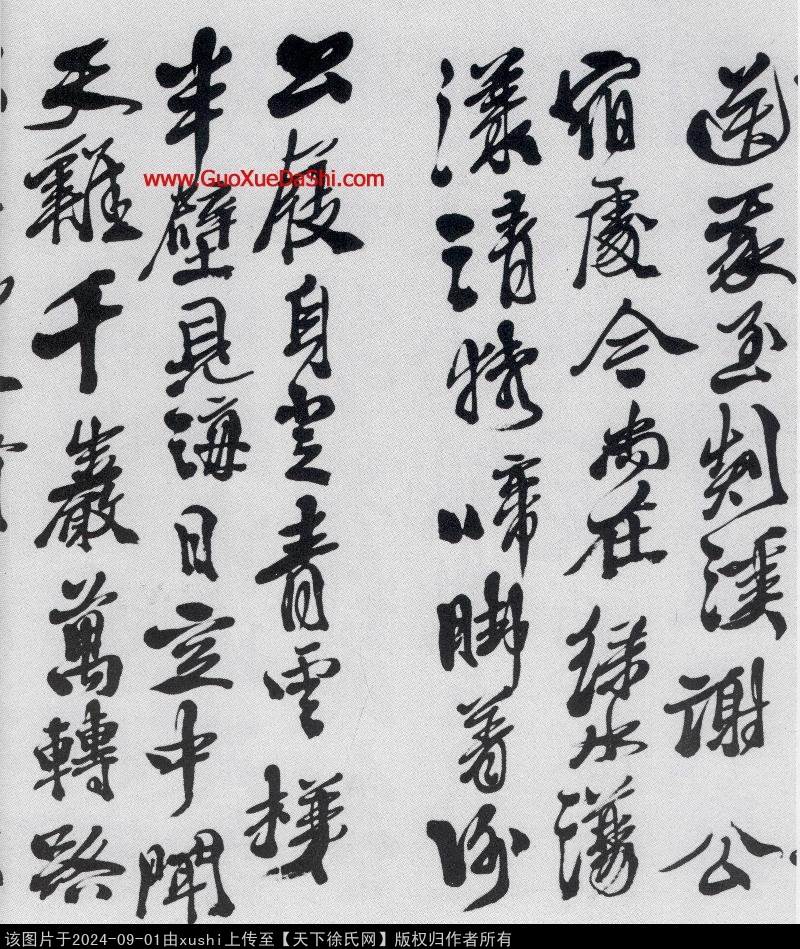 送我至剡溪謝公
宿處今尚在綠水蕩
漾清猿啼脚着謝
公屐身登青雲梯
半壁見海日空中聞
天雞千巖萬轉路
www.GuoXueDaShi.com
该图片于2024-09-01由xushi上传至【天下徐氏网】版权归作者所有